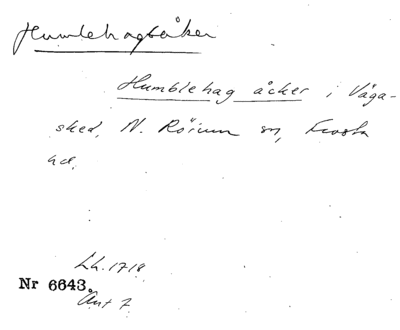 Humlehagsåker
Humblehag åcker i Våga-
shed, N. Rörum sn, Frosta
hd.
Lh. 1718
Nr 6643.
Änt 7